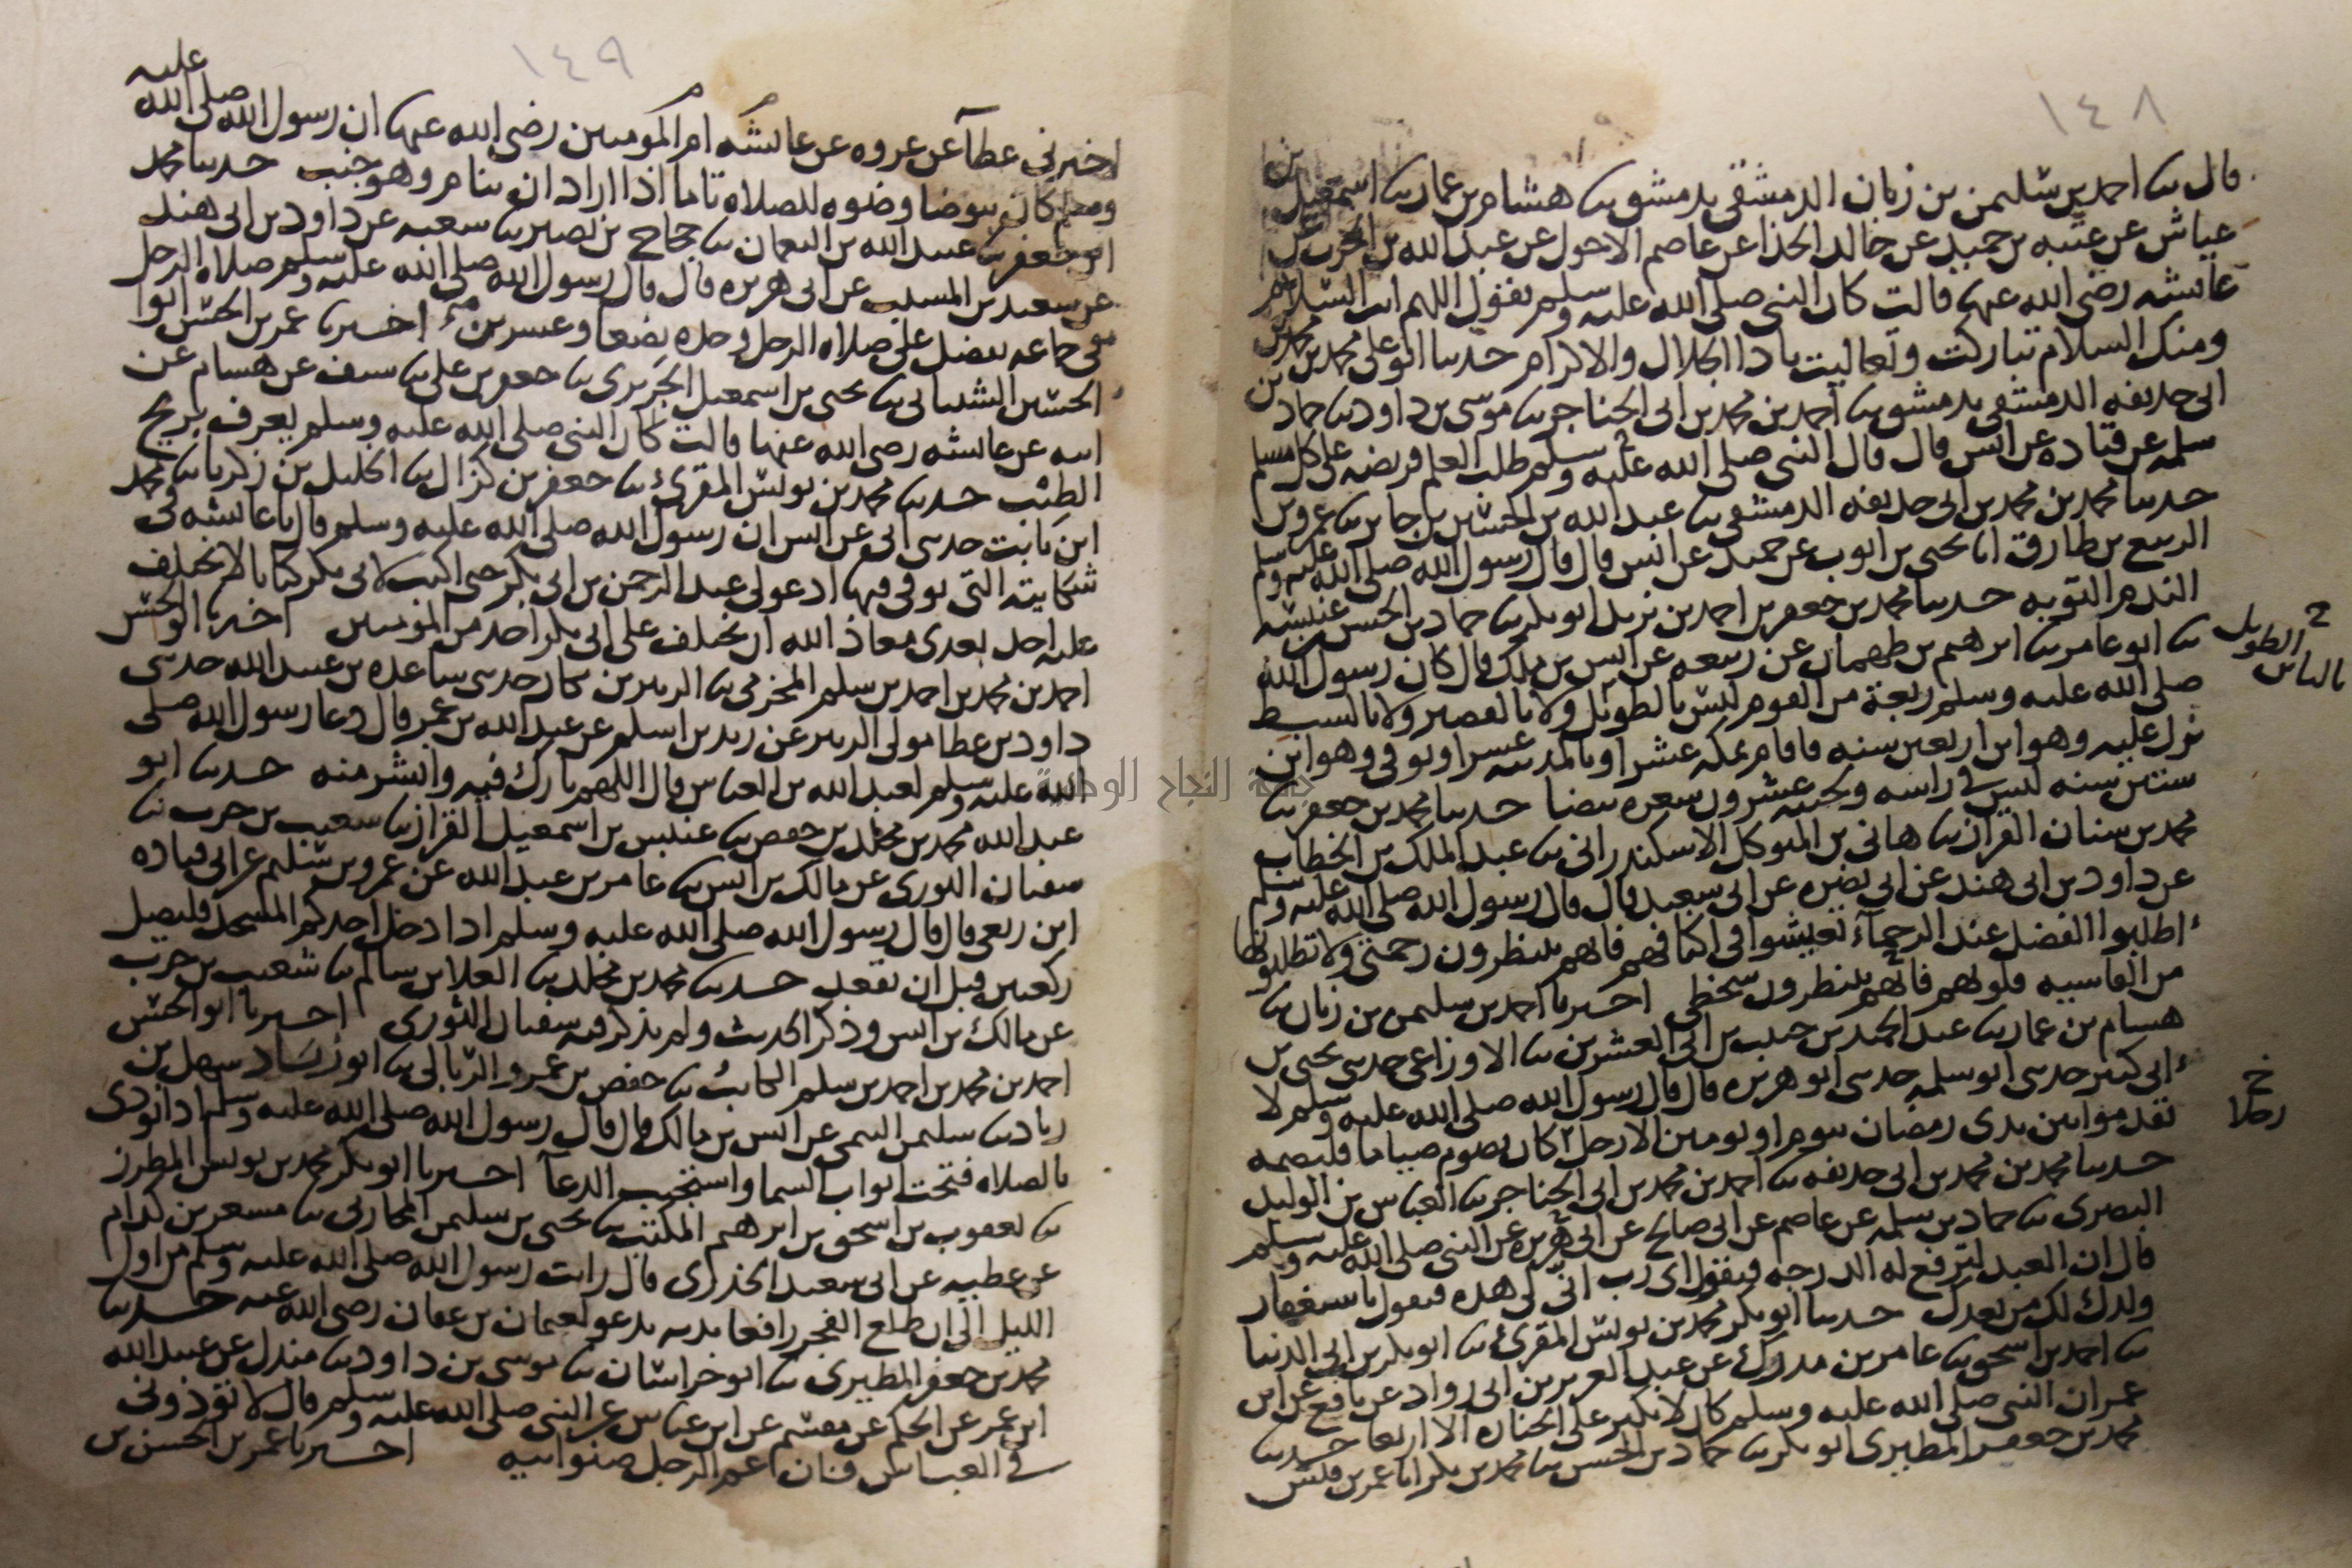 ١٤٨
قال نا احمد بن سليمن بن زبان الدمشقي بدمشق نا هشام بن عمار نا اسمعيل بن
عياش عن عتبه بن حميد عن خالد الحذا عن عاصم الاحول عن عبد الله بن الحرث عن
عائشه رضي الله عنها قالت كان النبي صلى الله عليه وسلم يقول اللهم انت السلام
ومنك السلام تباركت وتعاليت يا ذا الجلال والاكرام حدثنا ابو علي محمد بن محمد بن
ابي حذيفه الدمشقي بدمشق نا احمد بن محمد بن ابي الخناجر نا موسى بن داود نا حماد بن
سلمه عن قتاده عن انس قال قال النبي صلى الله عليه وسلم طلب العلم فريضه على كل مسلم
حدثنا محمد بن محمد بن ابي حذيفه الدمشقي نا عبد الله بن الحسين بن جابر نا عمرو بن
الربيع بن طارق انا يحيى بن ايوب عن حميد عن انس قال قال رسول الله صلى الله عليه وسلم
الندم التوبه حدثنا محمد بن جعفر بن احمد بن يزيد ابو بكر نا حماد بن الحسن بن عنبسه
نا ابو عامر نا ابرهيم بن طهمان عن ربيعه عن انس بن ملك قال كان رسول الله
صلى الله عليه وسلم ربعة من القوم ليس بالطويل ولا بالقصير ولا بالسبط
الطويل
البائن
نزل عليه وهو ابن اربعين سنه فاقام بمكه عشرا وبالمدينه عشرا وتوفي وهو ابن
ستين سنه ليس في راسه ولحيته عشرون شعره بيضا حدثنا محمد بن جعفر نا
محمد بن سنان القزاز نا هاني بن المتوكل الاسكندراني نا عبد الملك بن الخطاب
عن داود بن ابي هند عن ابي نضره عن ابي سعيد قال قال رسول الله صلى الله عليه وسلم
اطلبوا الفضل عند الرحماء تعيشوا في اكنافهم فانهم ينتظرون رحمتي ولا تطلبوها
من القاسيه قلوبهم فانهم ينتظرون سخطي اخبرنا احمد بن سليمن بن زبان نا
هشام بن عمار نا عبد الحميد بن حبيب بن ابي العشرين نا الاوزاعي حدثني يحيى بن
ابي كثير حدثني ابو سلمه حدثني ابو هريره قال قال رسول الله صلى الله عليه وسلم لا
تقدموا بين يدي رمضان بيوم او يومين الا رجل كان يصوم صياما فليصمه
خ
رجلا
حدثنا محمد بن محمد بن ابي حذيفه نا احمد بن محمد بن ابي الخناجر نا العباس بن الوليد
البصري نا حماد بن سلمه عن عاصم عن ابي صالح عن ابي هريره عن النبي صلى الله عليه وسلم
قال ان العبد لترفع له الدرجه فيقول اي رب انى لي هذه فيقول باستغفار
ولدك لك من بعدك حدثنا ابو بكر محمد بن يونس المقرئ نا ابو بكر بن ابي الدنيا
نا احمد بن اسحق نا عامر بن مدرك عن عبد العزيز بن ابي رواد عن نافع عن ابن
عمر ان النبي صلى الله عليه وسلم كان لا يكبر على الجنازه الا اربعا حدثنا
محمد بن جعفر المطيري ابو بكر نا حماد بن الحسن نا محمد بن بكر انا عمر بن قيس
١٤٩
اخبرني عطآ عن عروه عن عائشه ام المومنين رضي الله عنها ان رسول الله صلى الله عليه
وسلم كان يتوضا وضوه للصلاه تاما اذا اراد ان ينام وهو جنب حدثنا محمد
ابن جعفر نا عبيد الله بن النعمان نا حجاج بن نصير نا شعبه عن داود بن ابي هند
عن سعيد بن المسيب عن ابي هريره قال قال رسول الله صلى الله عليه وسلم صلاه الرجل
في جماعه تفضل على صلاه الرجل وحده بضعا وعشرين اخبرنا عمر بن الحسن ابوا
الحسين الشيباني نا يحيى بن اسمعيل الجريري نا جعفر بن علي نا سيف عن هشام عن
ابيه عن عائشه رضي الله عنها قالت كان النبي صلى الله عليه وسلم يعرف بريح
الطيب حدثنا محمد بن يونس المقرئ نا جعفر بن كزال نا الخليل بن زكريا نا محمد
ابن ثابت حدثني ابي عن انس ان رسول الله صلى الله عليه وسلم قال يا عائشه في
شكايته التي توفي فيها ادعو لي عبد الرحمن بن ابي بكر حتى اكتب لابي بكر كتابا لا يختلف
عليه احد بعدي معاذ الله ان يختلف على ابي بكر احد من المومنين اخبرنا ابو الحسن
احمد بن محمد بن احمد بن سلم المخرمي نا الزبير بن بكار حدثني ساعده بن عبيد الله حدثني
داود بن عطا مولى الزبير عن زيد بن اسلم عن عبد الله بن عمر قال دعا رسول الله صلى
الله عليه وسلم لعبد الله بن العباس قال اللهم بارك فيه وانشر منه حدثنا ابو
عبد الله محمد بن مخلد بن حفص نا عنبس بن اسمعيل القزاز نا شعيب بن حرب نا
سفيان الثوري عن مالك بن انس نا عامر بن عبد الله عن عمرو بن سليم عن ابي قتاده
ابن ربعي قال قال رسول الله صلى الله عليه وسلم اذا دخل احدكم المسجد فليصل
ركعتين قبل ان يقعد حدثنا محمد بن مخلد نا العلا بن سالم نا شعيب بن حرب
عن مالك بن انس وذكر الحديث ولم يذكر فيه سفيان الثوري اخبرنا ابو الحسن
احمد بن محمد بن احمد بن سلم الكاتب نا حفص بن عمرو الربالي نا ابو زياد سهل بن
زياد نا سليمن التيمي عن انس بن مالك قال قال رسول الله صلى الله عليه وسلم اذا نودي
بالصلاه فتحت ابواب السما واستجيب الدعآ اخبرنا ابو بكر محمد بن يونس المطرز
نا يعقوب بن اسحق بن ابرهيم المكتب نا يحيى بن سليمن المحاربي نا مسعر بن كدام
عن عطيه عن ابي سعيد الخدري قال رايت رسول الله صلى الله عليه وسلم من اول
الليل الى ان طلع الفجر رافعا يديه يدعو لعثمان بن عفان رضي الله عنه حدثنا
محمد بن جعفر المطيري نا ابو خراسان نا موسى بن داود نا مندل عن عبيد الله
ابن عمر عن الحكم عن مقسم عن ابن عباس عن النبي صلى الله عليه وسلم قال لا توذوني
في العباس فان عم الرجل صنو ابيه اخبرنا عمر بن الحسن بن
جامعة النجاح الوطنية